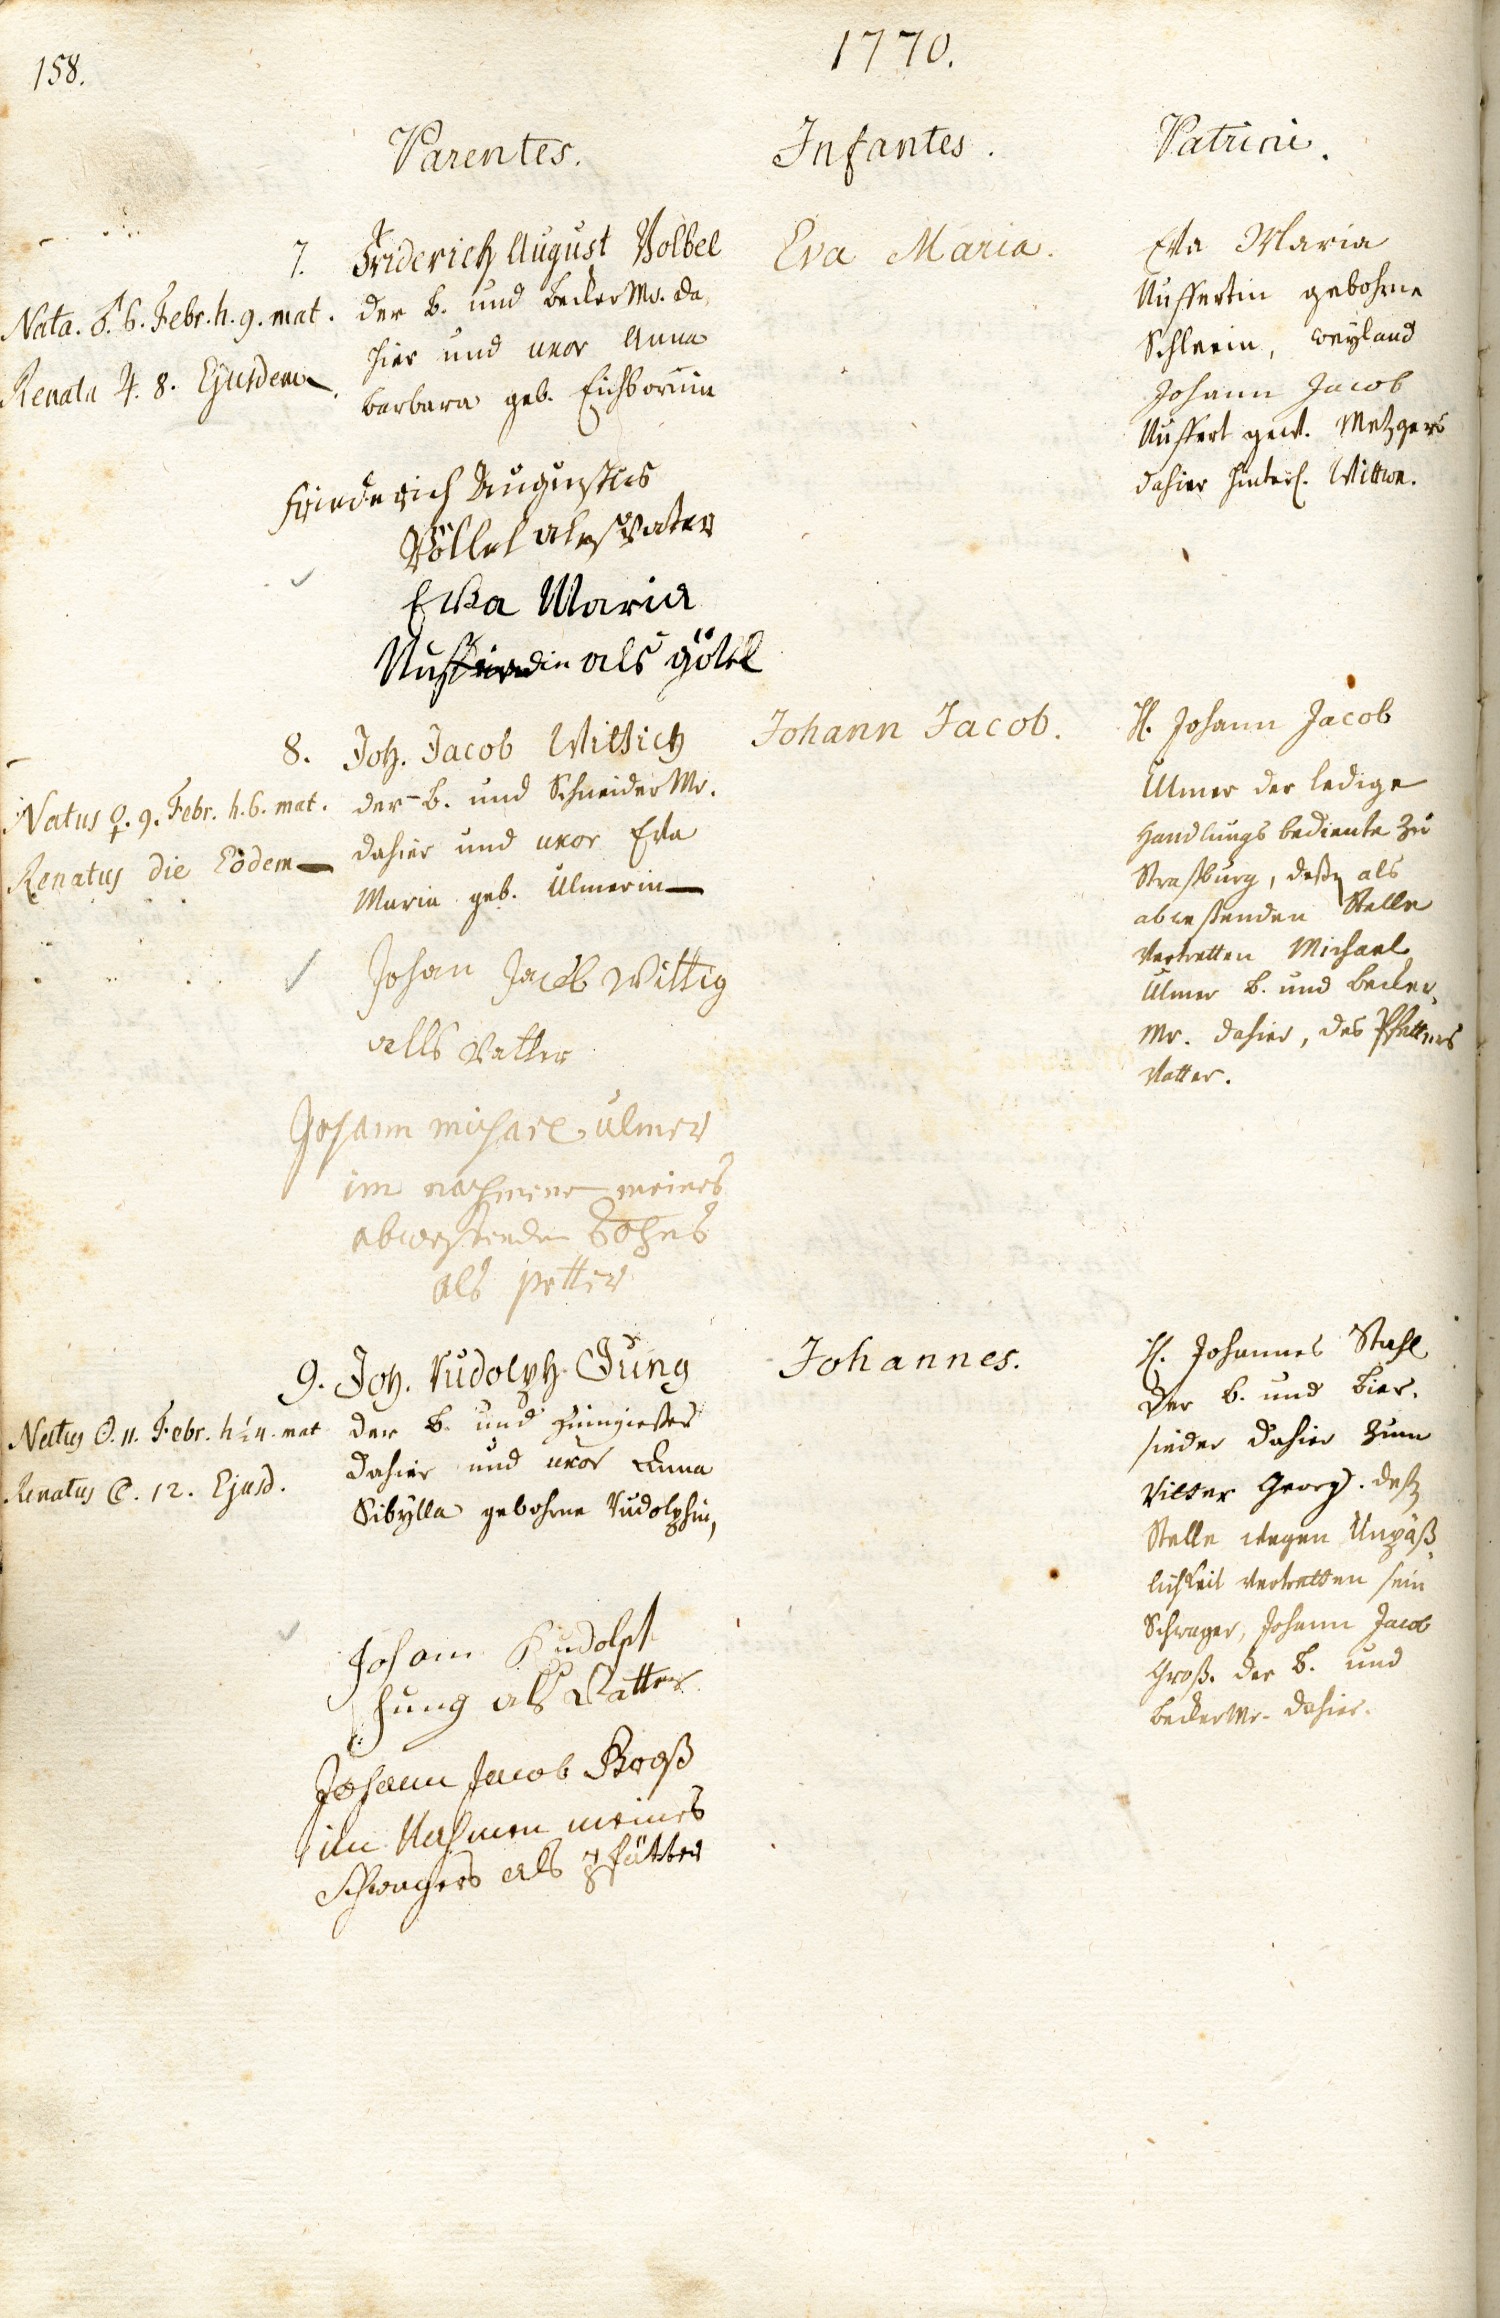 158.
1770.
Parentes.
Infantes.
Patrini.
7.
Nata. ♂. 6. Febr. h. 9. mat.
Renata ♃. 8. Ejusdem
Friderich August Völbel
der b. und becker Mr. da
hier und uxor Anna
barbara geb. Eichbornin
Friederich Augustus
Völlbel als Vater
Eva Maria
als göttel
Eva Maria.
Eva Maria
Nuffertin gebohrne
weyland
Johann Jacob
Nuffert gew. Metzgers
dahier hinterl. Wittwe.
8.
Natus ♀. 9. Febr. h. 6. mat.
Renatus die Eodem
Joh. Jacob Wittich
der b. und Schneider Mr.
dahier und uxor Eva
Maria geb. Ulmerin
Johan Jacob Wittig
alls Vatter
Johann michael ulmer
im nahmene meines
abweßenden Sohns
als petter
Johann Jacob.
H. Johann Jacob
Ulmer der ledige
Handlungs bediente zu
Straßburg, deßen als
abweßenden Stelle
vertretten Michael
Ulmer b. und becker
Mr. dahier, des Pfetters
Vatter.
9.
Natus ☉. 11. Febr. h. ½4. mat
Renatus ☾. 12. Ejusd.
Joh. Rudolph Jung
der b. und Zinngießer
dahier und uxor Anna
Sibylla gebohrne Rudolphin,
Johann Rudolph
Jung als Vatter
Johann Jacob Groß
im Nahmen meines
Schwagers als Pfätter
Johannes.
H. Johannes Stahl
der b. und bier
sieder dahier zum
Ritter Georg. deßen
Stelle wegen Unpäß
lichkeit vertretten sein
Schwager, Johann Jacob
Groß. der b. und
becker Mr. dahier.